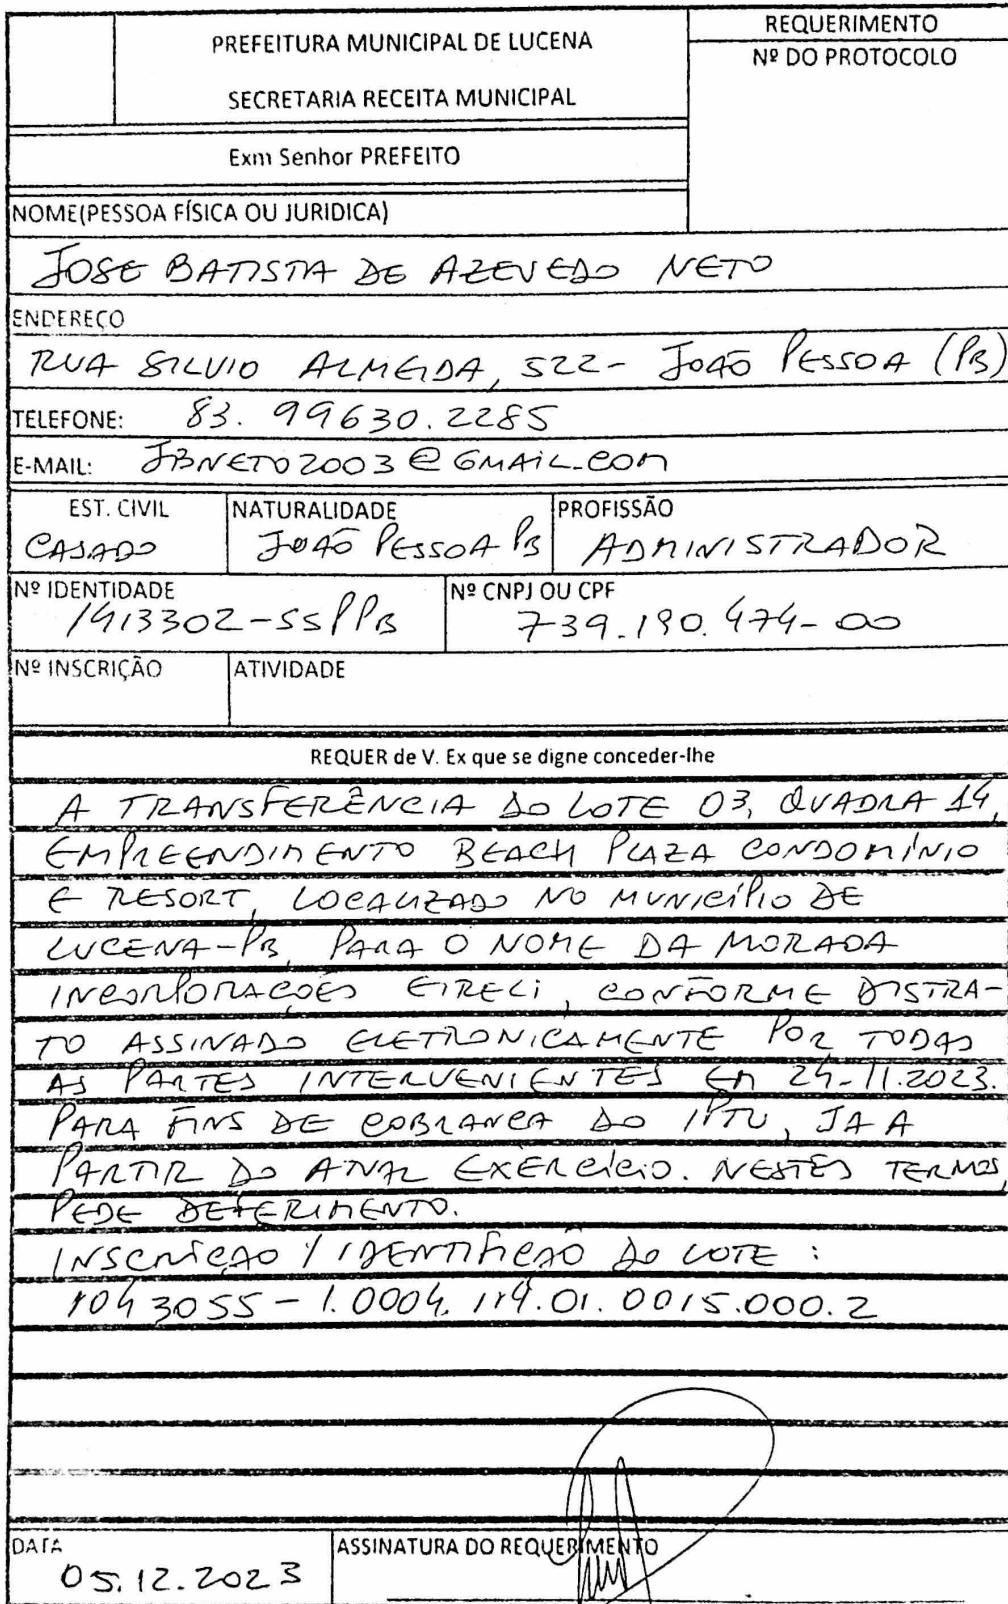 PREFEITURA MUNICIPAL DE LUCENA
SECRETARIA RECEITA MUNICIPAL
REQUERIMENTO
Nº DO PROTOCOLO
Exm Senhor PREFEITO
NOME(PESSOA FÍSICA OU JURIDICA)
JOSE BATISTA DE AZEVEDO NETO
ENDEREÇO
RUA SILVIO ALMEIDA, 522 - JOÃO PESSOA (PB)
TELEFONE: 83. 99630.2285
E-MAIL: JBNETO2003@GMAIL.COM
EST. CIVIL NATURALIDADE PROFISSÃO
CASADO JOÃO PESSOA PB ADMINISTRADOR
Nº IDENTIDADE Nº CNPJ OU CPF
1413302-SSPPB 739.190.474-00
Nº INSCRIÇÃO ATIVIDADE
REQUER de V. Ex que se digne conceder-lhe
A TRANSFERÊNCIA DO LOTE 03, QUADRA 14,
EMPREENDIMENTO BEACH PLAZA CONDOMÍNIO
E RESORT, LOCALIZADO NO MUNICÍPIO DE
LUCENA-PB, PARA O NOME DA MORADA
INCORPORACOES EIRELI, CONFORME DISTRA-
TO ASSINADO ELETRONICAMENTE POR TODAS
AS PARTES INTERVENIENTES EM 24-11.2023.
PARA FINS DE COBRANCA DO IPTU, JA A
PARTIR DO ATUAL EXERCÍCIO. NESTES TERMOS,
PEDE DEFERIMENTO.
INSCRIÇAO / IDENTIFICAÕ DO LOTE :
1043055 - 1.0004.114.01.0015.000.2
DATA ASSINATURA DO REQUERIMENTO
05.12.2023